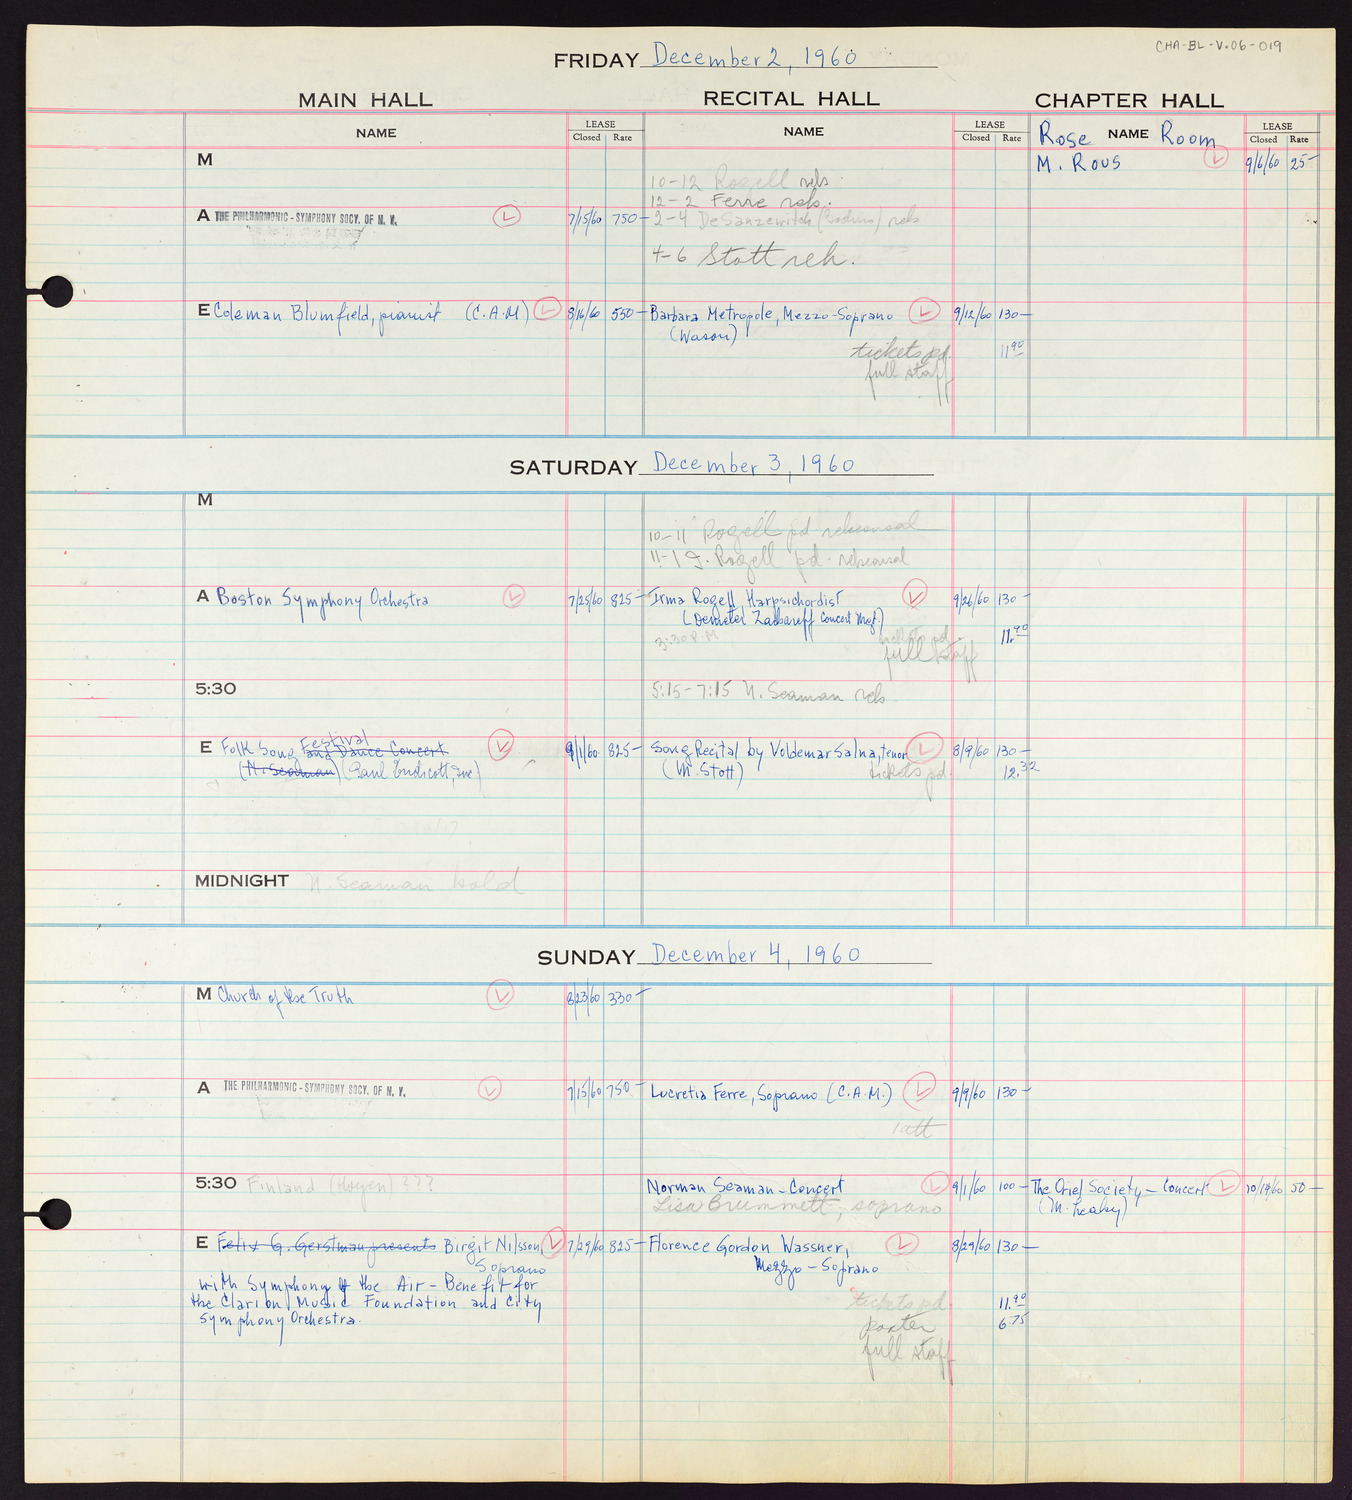 CHA-BL-V.06-019
FRIDAY December 2, 1960
MAIN HALL RECITAL HALL CHAPTER HALL
NAME LEASE Closed Rate NAME LEASE Closed Rate Rose NAME Room LEASE Closed Rate
M
M. Rous 9/6/60 25-
10-12 Rozell reh.
12-2 Ferre reh.
A THE PHILHARMONIC-SYMPHONY SOCY. OF N. Y. 7/15/60 750- 2-4 DeSanzewitch reh
4-6 Stott reh.
E Coleman Blumfield, pianist (C.A.M) 8/16/60 550- Barbara Metropole, Mezzo-Soprano 9/12/60 130-
(Wason)
tickets pd. 11.90
full staff
SATURDAY December 3, 1960
M
10-11 Rozell pd rehearsal
11-1 I. Rozell pd. rehearsal
A Boston Symphony Orchestra 7/25/60 825- Irma Rozell Harpsichordist 9/26/60 130-
(Demeter Zachareff Concert Mgt.)
3:30 P.M tickets pd. 11.90
full staff
5:30 5:15-7:15 N. Seaman reh
E Folk Song Festival and Dance Concert 9/1/60 825- Song Recital by Voldemar Salna, tenor 8/9/60 130-
(N. Seaman) (Paul Endicott, Inc) (M. Stott) tickets pd. 12.32
MIDNIGHT N. Seaman hold
SUNDAY December 4, 1960
M Church of the Truth 8/23/60 330-
A THE PHILHARMONIC-SYMPHONY SOCY. OF N. Y. 7/15/60 750- Lucretia Ferre, Soprano (C.A.M.) 9/9/60 130-
1 att
5:30 Finland (Høyen) ??? Norman Seaman - Concert 9/1/60 100- The Orief Society - Concert 10/19/60 50-
Lisa Brummett, soprano (M. Leahy)
E Felix G. Gerstman presents Birgit Nilsson, 7/29/60 825- Florence Gordon Wassner, 8/29/60 130-
Soprano Mezzo-Soprano
with Symphony of the Air - Benefit for
the Clarion Music Foundation and City
Symphony Orchestra.
tickets pd. 11.90
porter 6.75
full staff